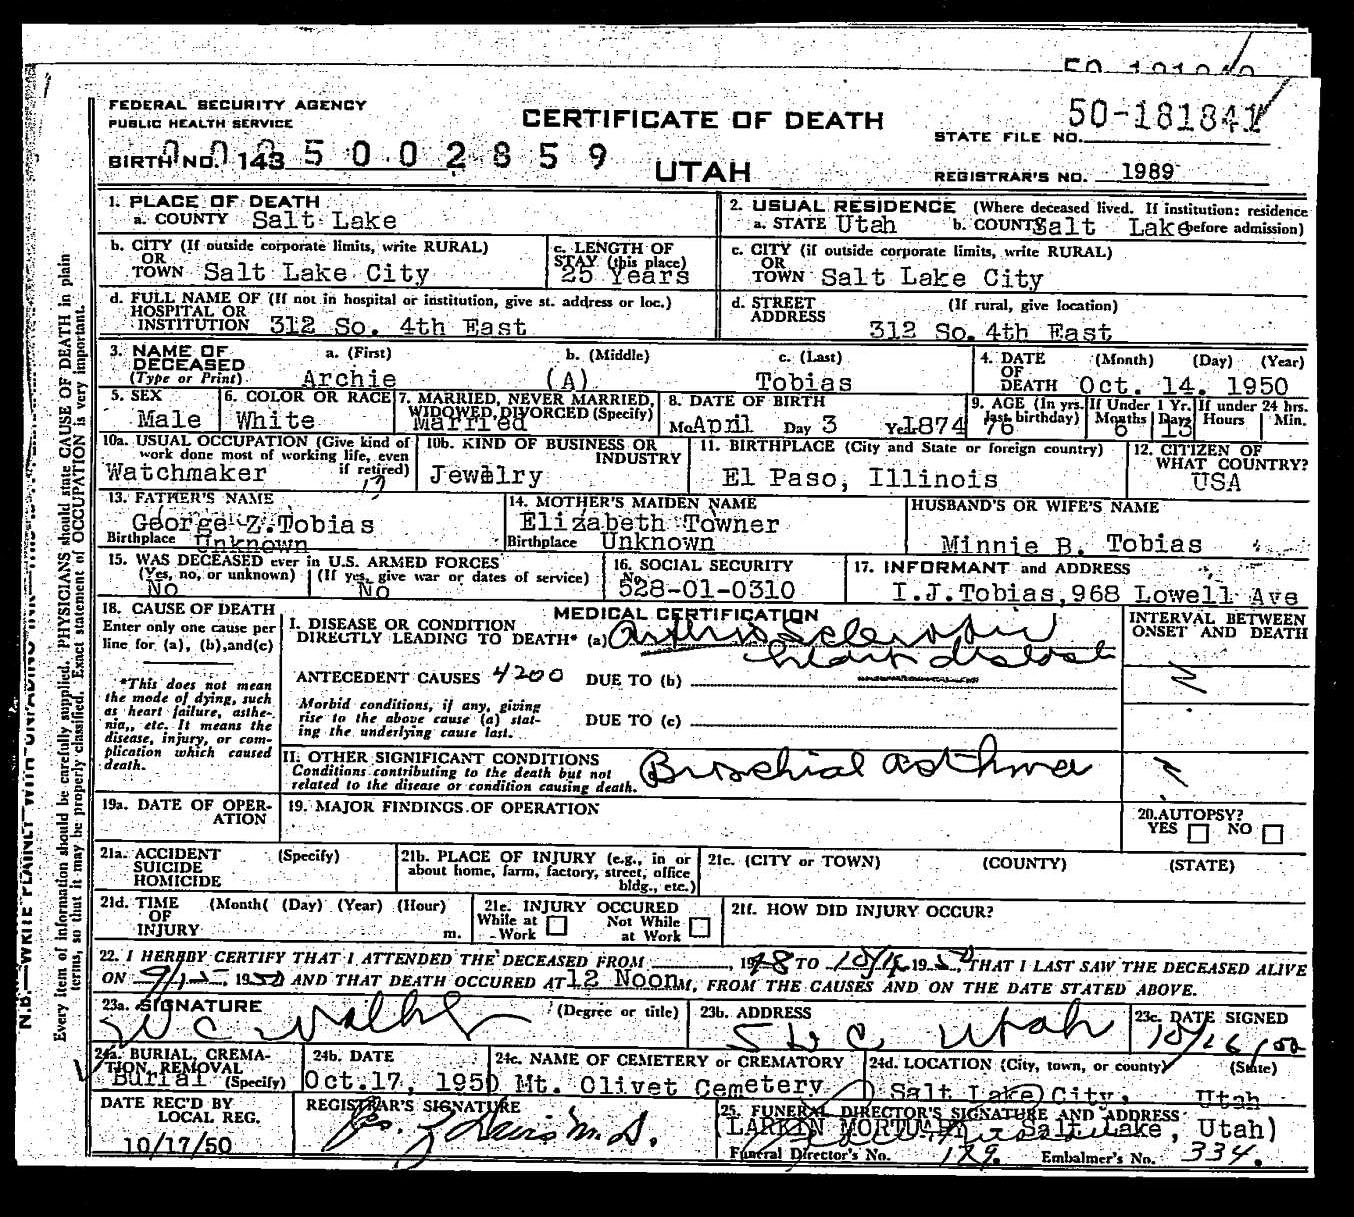 50-181841
FEDERAL SECURITY AGENCY
PUBLIC HEALTH SERVICE
CERTIFICATE OF DEATH
UTAH
STATE FILE NO. 50-181841
BIRTH NO. 143
5002859
REGISTRAR'S NO. 1989
1. PLACE OF DEATH
a. COUNTY Salt Lake
2. USUAL RESIDENCE (Where deceased lived. If institution: residence before admission)
a. STATE Utah b. COUNTY Salt Lake
b. CITY (If outside corporate limits, write RURAL)
OR
TOWN Salt Lake City
c. LENGTH OF STAY (this place)
25 Years
c. CITY (if outside corporate limits, write RURAL)
OR
TOWN Salt Lake City
d. FULL NAME OF (If not in hospital or institution, give st. address or loc.)
HOSPITAL OR
INSTITUTION 312 So. 4th East
d. STREET ADDRESS (If rural, give location)
312 So. 4th East
3. NAME OF DECEASED
(Type or Print)
a. (First) b. (Middle) c. (Last)
Archie (A) Tobias
4. DATE OF DEATH (Month) (Day) (Year)
Oct. 14. 1950
5. SEX
Male
6. COLOR OR RACE
White
7. MARRIED, NEVER MARRIED, WIDOWED, DIVORCED (Specify)
Married
8. DATE OF BIRTH
Mo April Day 3 Year 1874
9. AGE (In yrs. last birthday)
76
If Under 1 Yr.
Months 6 Days 13
If under 24 hrs.
Hours Min.
10a. USUAL OCCUPATION (Give kind of work done most of working life, even if retired)
Watchmaker
10b. KIND OF BUSINESS OR INDUSTRY
Jewelry
11. BIRTHPLACE (City and State or foreign country)
El Paso, Illinois
12. CITIZEN OF WHAT COUNTRY?
USA
13. FATHER'S NAME
George Z.Tobias
Birthplace Unknown
14. MOTHER'S MAIDEN NAME
Elizabeth Towner
Birthplace Unknown
HUSBAND'S OR WIFE'S NAME
Minnie B. Tobias
15. WAS DECEASED ever in U.S. ARMED FORCES
(Yes, no, or unknown) (If yes, give war or dates of service)
No No
16. SOCIAL SECURITY No.
528-01-0310
17. INFORMANT and ADDRESS
I.J.Tobias,968 Lowell Ave
18. CAUSE OF DEATH
Enter only one cause per line for (a), (b),and(c)
*This does not mean the mode of dying, such as heart failure, asthenia,, etc. It means the disease, injury, or complication which caused death.
MEDICAL CERTIFICATION
I. DISEASE OR CONDITION
DIRECTLY LEADING TO DEATH* (a) Arteriosclerotic
heart disease
INTERVAL BETWEEN ONSET AND DEATH
ANTECEDENT CAUSES 4200 DUE TO (b)
Morbid conditions, if any, giving rise to the above cause (a) stating the underlying cause last.
DUE TO (c)
II. OTHER SIGNIFICANT CONDITIONS
Conditions contributing to the death but not related to the disease or condition causing death.
Bronchial asthma
19a. DATE OF OPERATION
19. MAJOR FINDINGS OF OPERATION
20.AUTOPSY?
YES NO
21a. ACCIDENT (Specify)
SUICIDE
HOMICIDE
21b. PLACE OF INJURY (e.g., in or about home, farm, factory, street, office bldg., etc.)
21c. (CITY or TOWN) (COUNTY) (STATE)
21d. TIME OF INJURY (Month( (Day) (Year) (Hour) m.
21e. INJURY OCCURED
While at Work
Not While at Work
21f. HOW DID INJURY OCCUR?
22. I HEREBY CERTIFY THAT I ATTENDED THE DECEASED FROM , 1948 TO 10/14, 1950, THAT I LAST SAW THE DECEASED ALIVE
ON 9/15, 1950 AND THAT DEATH OCCURED AT 12 Noon M, FROM THE CAUSES AND ON THE DATE STATED ABOVE.
23a. SIGNATURE (Degree or title)
W C Walker
23b. ADDRESS
S L C Utah
23c. DATE SIGNED
10/16/50
24a. BURIAL, CREMATION, REMOVAL (Specify)
Burial
24b. DATE
Oct.17, 1950
24c. NAME OF CEMETERY or CREMATORY
Mt. Olivet Cemetery
24d. LOCATION (City, town, or county) (State)
Salt Lake City, Utah
DATE REC'D BY LOCAL REG.
10/17/50
REGISTRAR'S SIGNATURE
25. FUNERAL DIRECTOR'S SIGNATURE AND ADDRESS
(LARKIN MORTUARY Salt Lake, Utah)
Funeral Director's No. 129. Embalmer's No. 334.
Every item of information should be carefully supplied. PHYSICIANS should state CAUSE OF DEATH in plain terms, so that it may be properly classified. Exact statement of OCCUPATION is very important.
N.B.—WRITE PLAINLY